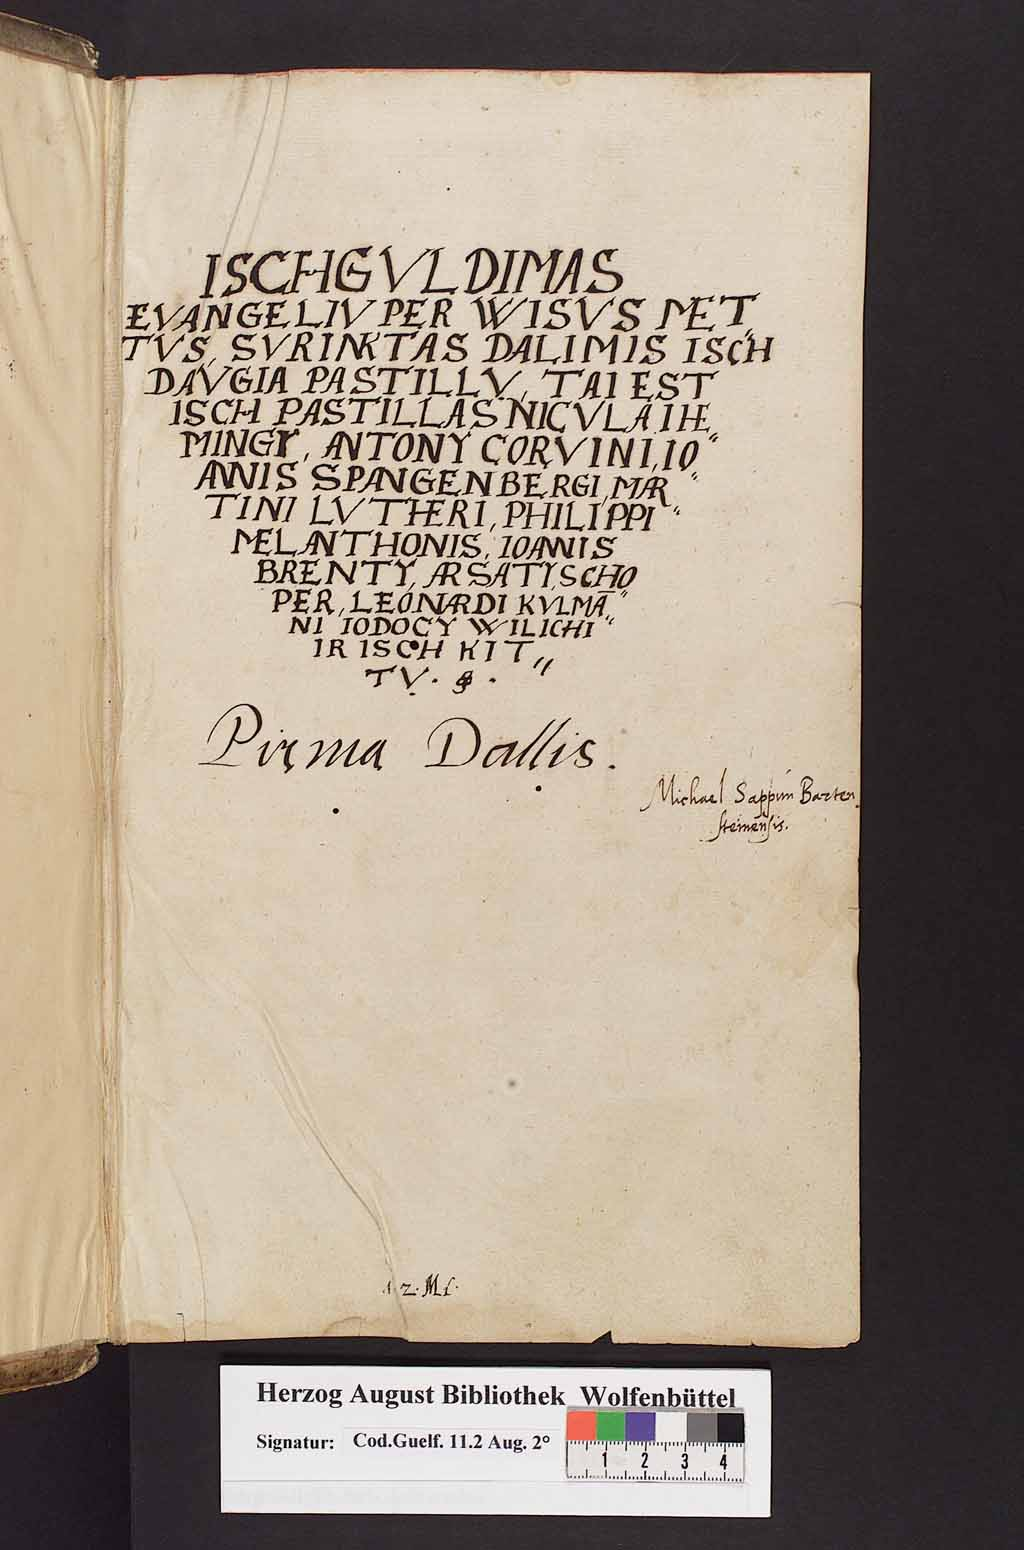 ISCHGVLDIMAS
EVANGELIV PER WISVS MET„
TVS, SVRINKTAS DALIMIS ISCH
DAVGIA PASTILLV, TAI EST
ISCH PASTILLAS NICVLAI HE
MINGY, ANTONY CORVINI, IO„
ANNIS SPANGENBERGI, MAR„
TINI LVTHERI, PHILIPPI„
MELANTHONIS, IOANNIS
BRENTY, ARSATY, SCHO
PER, LEONARDI KVLMĀ„
NI IODOCY WILICHI„
IR ISCH KIT„
TV.
Pirma Dallis.
Michael Sappun Barten
steinensis.
1.2. Ms.
Herzog August Bibliothek Wolfenbüttel
Signatur: Cod.Guelf. 11.2 Aug. 2°
1 2 3 4